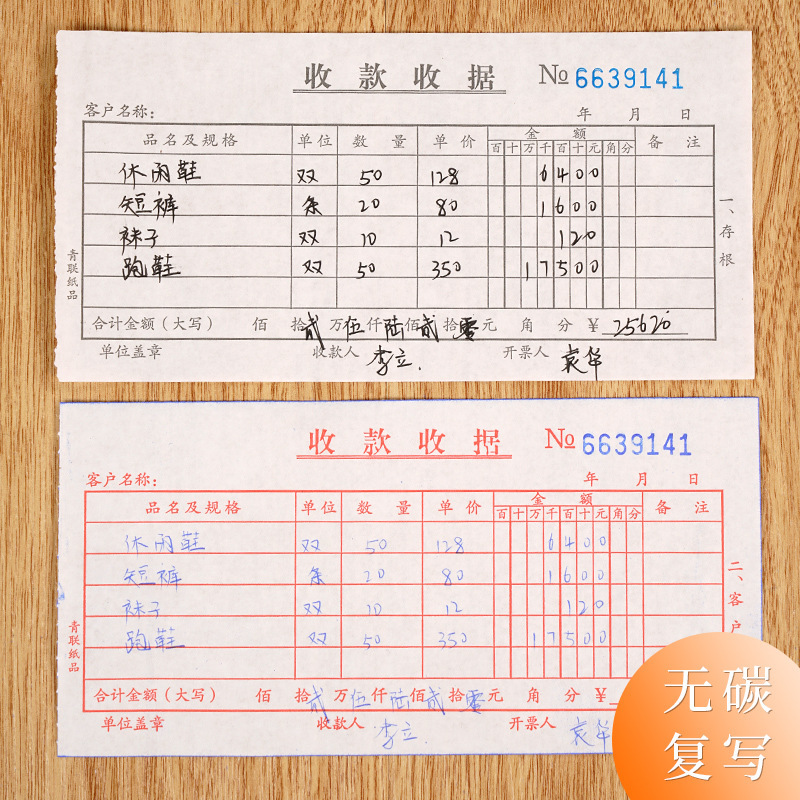 收款收据 № 6639141
客户名称： 年 月 日
品名及规格 单位 数量 单价 金额 备注
百 十 万 千 百 十 元 角 分
休闲鞋 双 50 128 6400
短裤 条 20 80 1600
袜子 双 10 12 120
跑鞋 双 50 350 17500
合计金额（大写） 佰 拾 贰 万 伍 仟 陆 佰 贰 拾 零 元 角 分 ￥ 25620
单位盖章 收款人 李立. 开票人 袁华
一、存根
青联纸品
收款收据 № 6639141
客户名称： 年 月 日
品名及规格 单位 数量 单价 金额 备注
百 十 万 千 百 十 元 角 分
休闲鞋 双 50 128 6400
短裤 条 20 80 1600
袜子 双 10 12 120
跑鞋 双 50 350 17500
合计金额（大写） 佰 拾 贰 万 伍 仟 陆 佰 贰 拾 零 元 角 分 ￥
单位盖章 收款人 李立. 开票人 袁华
二、客户
青联纸品
无碳
复写